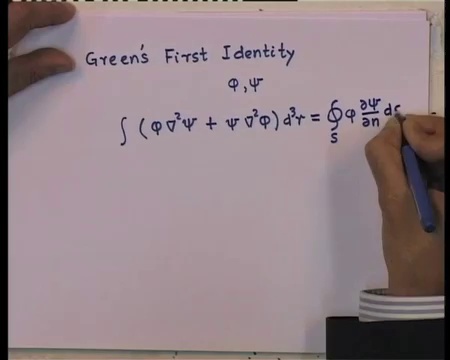 Green's First Identity
φ, ψ
∫ (φ ∇²ψ + ψ ∇²φ) d³r = ∮ φ ∂ψ/∂n ds
S